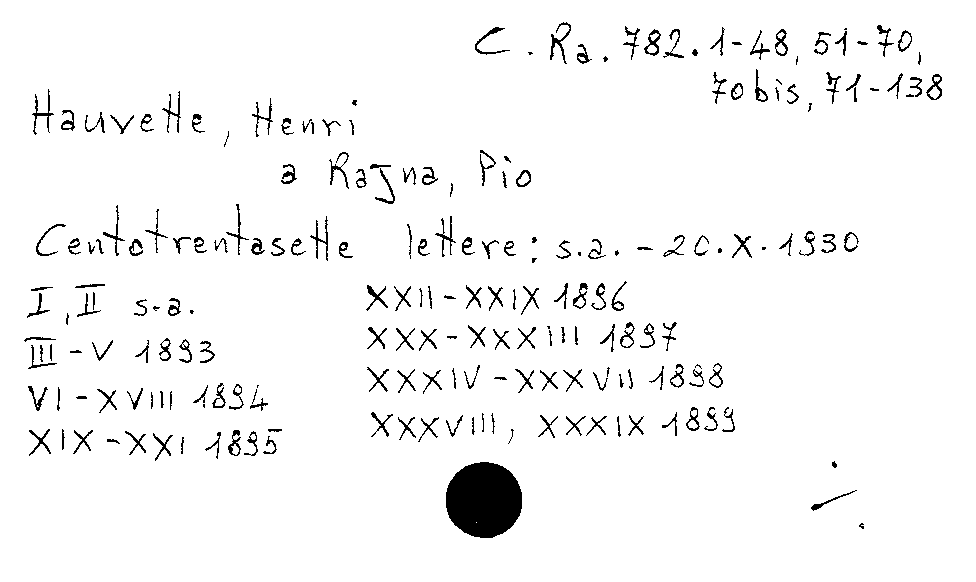 C. Ra. 782. 1-48, 51-70,
70 bis, 71-138
Hauvette, Henri
a Rajna, Pio
Centotrentasette lettere: s.a. - 20.X.1930
I, II s.a.
III - V 1893
VI - XVIII 1894
XIX - XXI 1895
XXII - XXIX 1896
XXX - XXXIII 1897
XXXIV - XXXVII 1898
XXXVIII, XXXIX 1899
./.